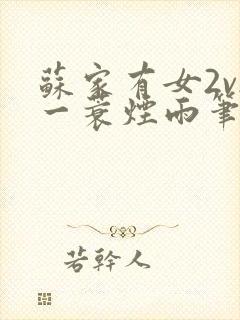 蘇家有女2v
一蓑煙雨筆
若幹人